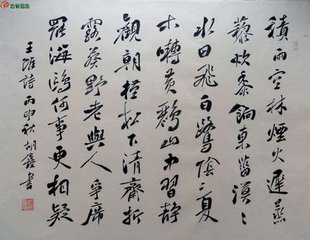 積雨空林煙火遲蒸
藜炊黍餉東菑漠〻
水田飛白鷺陰〻夏
木囀黄鸝山中習静
觀朝槿松下清齋折
露葵野老與人爭席
罷海鷗何事更相疑
王維詩丙申秋胡書